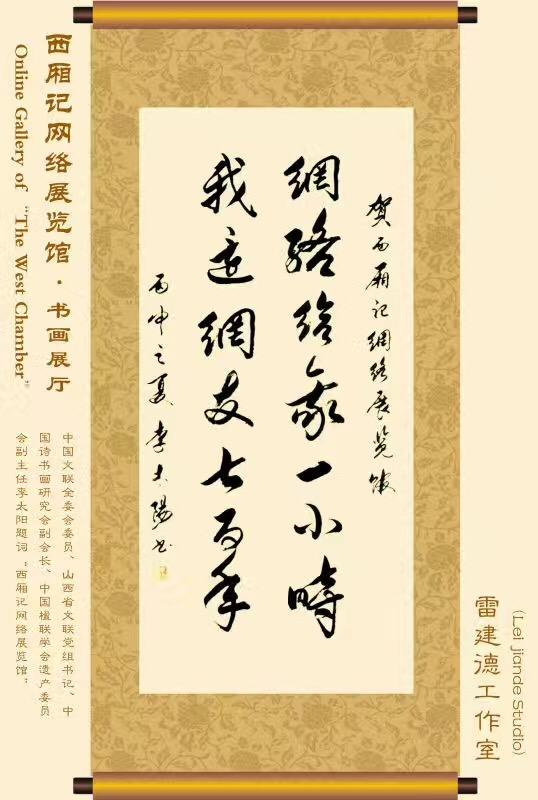 西厢记网络展览馆·书画展厅
Online Gallery of "The West Chamber"
中国文联全委会委员、山西省文联党组书记、中
国诗书画研究会副会长、中国楹联学会遗产委员
会副主任李太阳题词"西厢记网络展览馆"
賀西厢记網络展览馆
網络给我一小時
我还網友七百年
丙申之夏 李太陽书
(Lei jiande Studio)
雷建德工作室